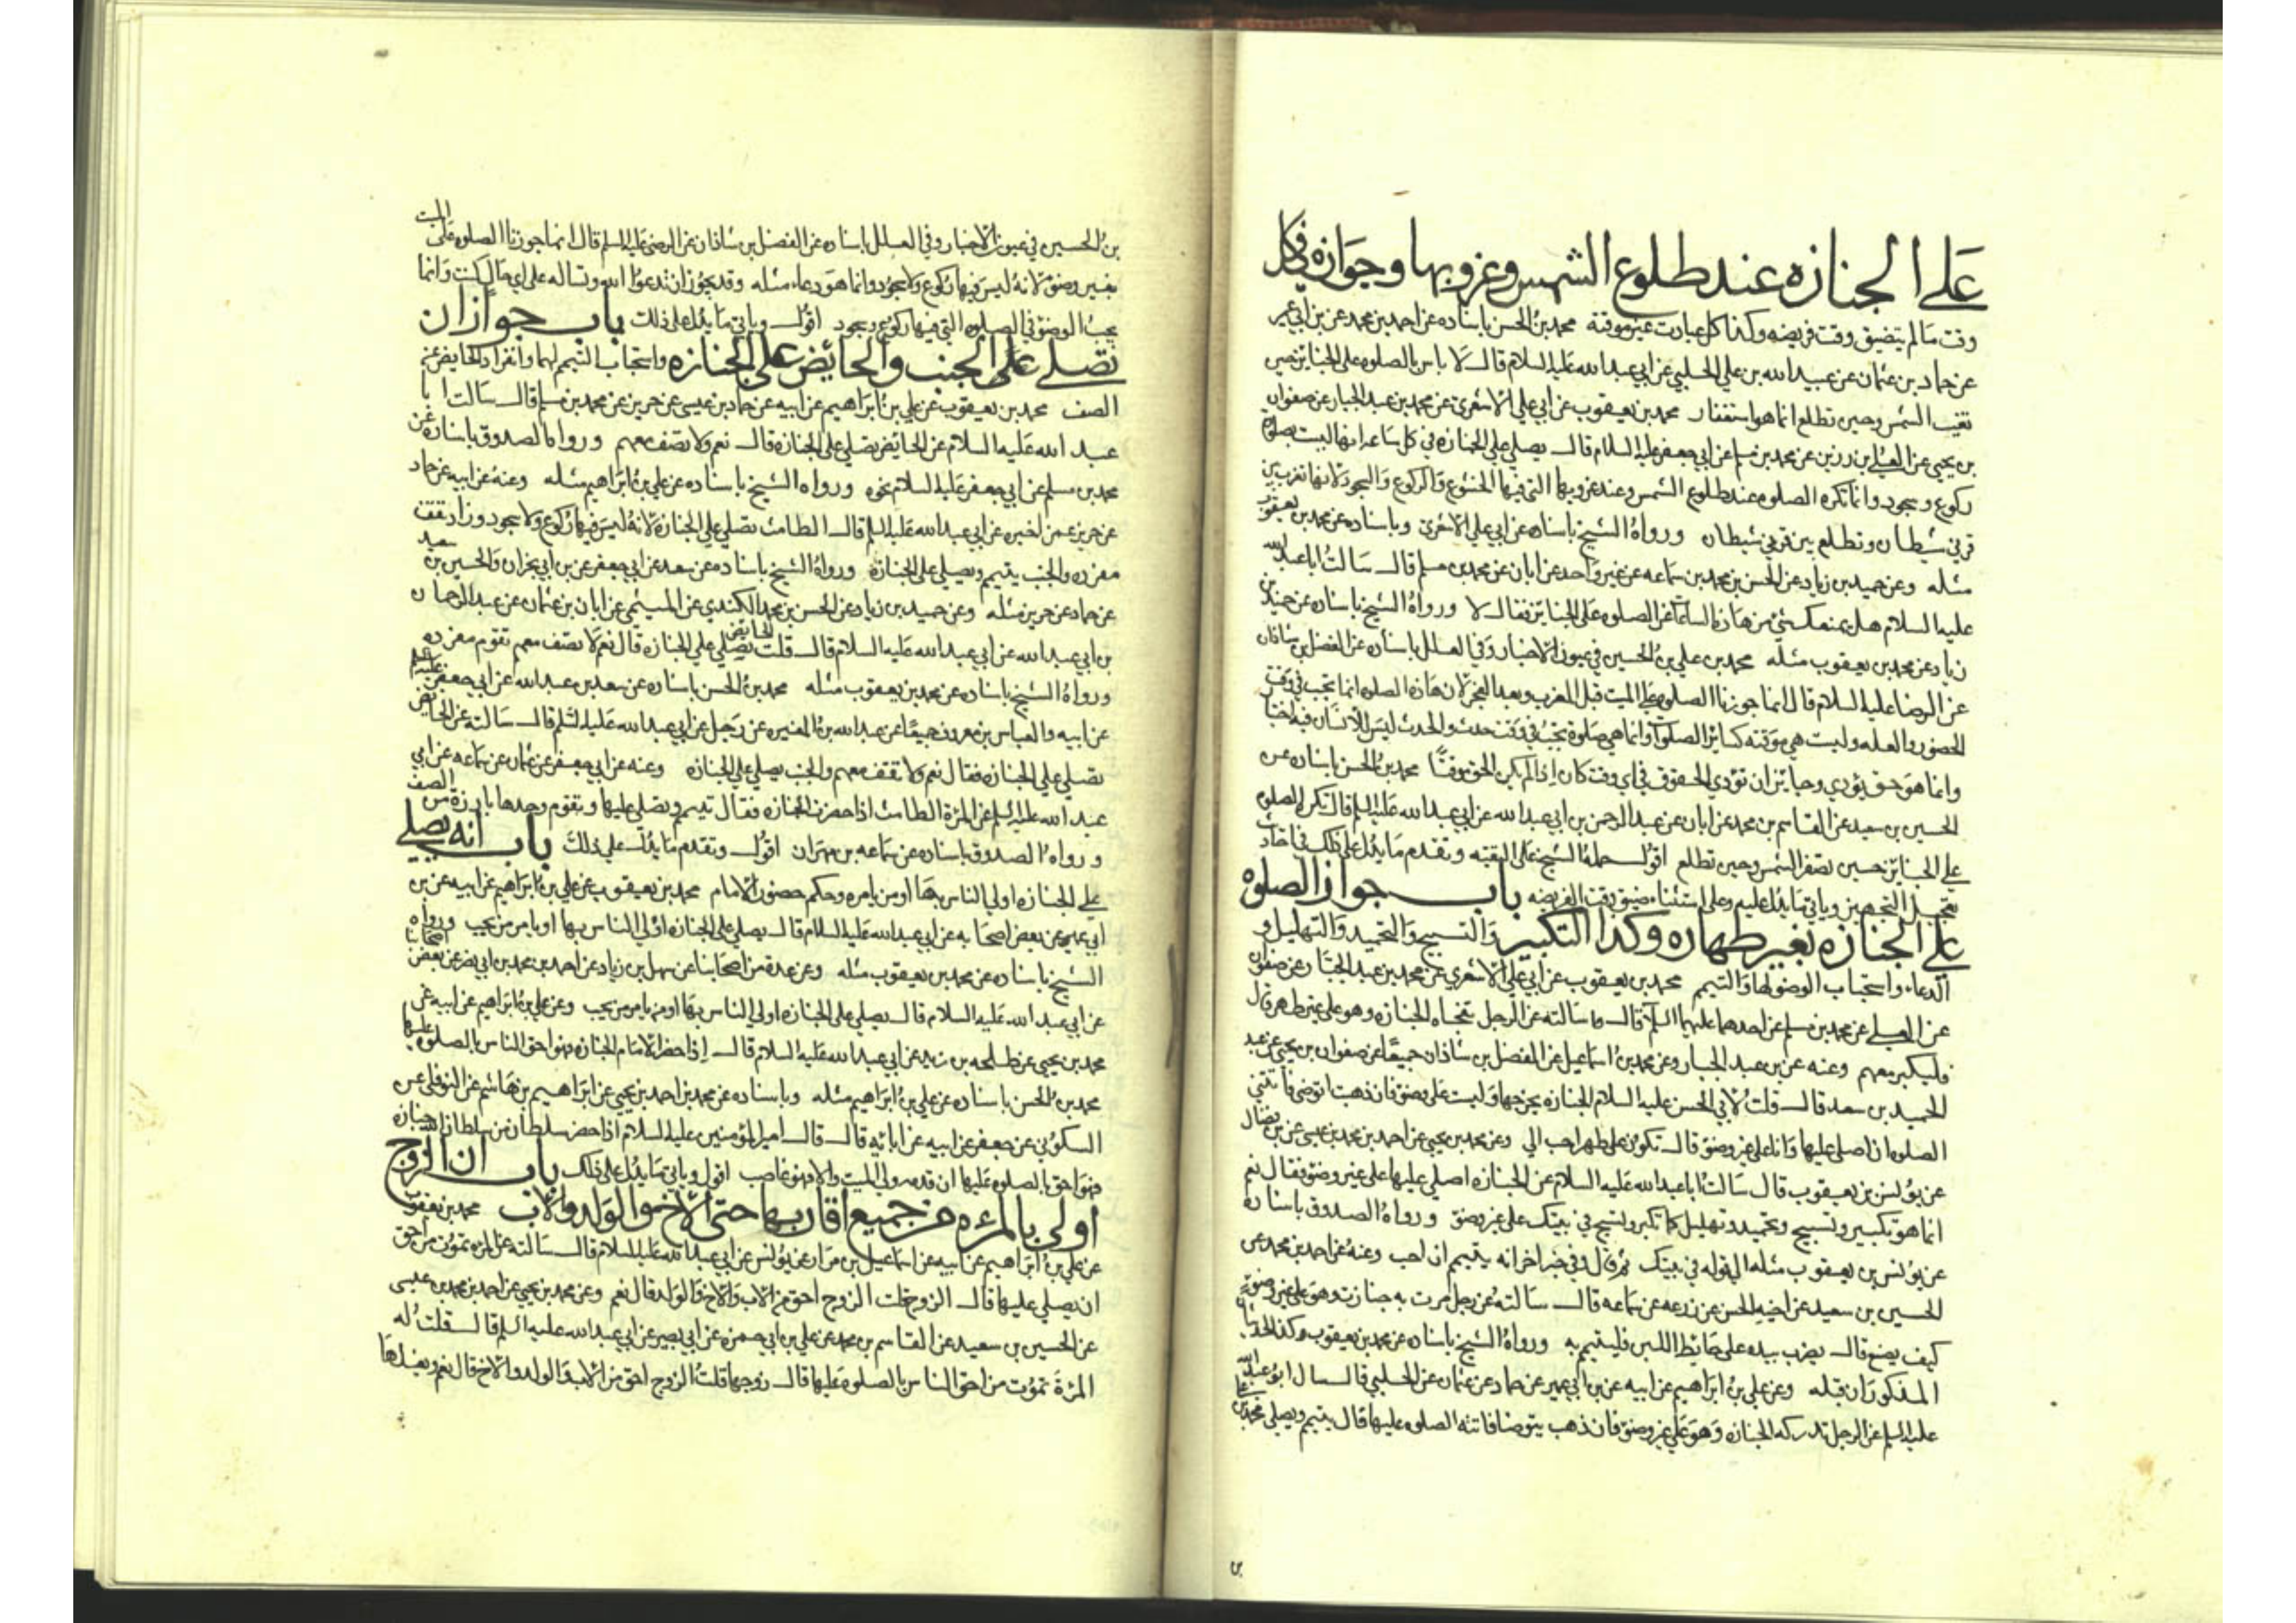 على الجنازه عند طلوع الشمس وغروبها وجوازه في كل
وقت مالم يتضيق وقت فريضه وكذا كل عبادت غير موقتة محمد بن الحسن باسناده عن احمد بن محمد عن بن ابي عمير
عن حماد بن عثمان عن عبيد الله بن علي الحلبي عن ابي عبد الله عليه السلام قال لا باس بالصلوه على الجنائز حين
تغيب الشمس وحين تطلع انما هو استغفار محمد بن يعقوب عن ابي علي الاشعري عن محمد بن عبد الجبار عن صفوان
بن يحيي عن العلي بن رزين عن محمد بن مسلم عن ابي جعفر عليه السلام قال يصلي على الجنازه في كل ساعه انها ليست بصلوة
ركوع وسجود وانما تكره الصلوه عند طلوع الشمس وعند غروبها التي فيها الخشوع والركوع والسجود لانها تغرب بين
قرني شيطان وتطلع بين قرني شيطان ورواه الشيخ باسناده عن ابي علي الاشعري وباسناده عن محمد بن يعقوب
مثله وعن حميد بن زياد عن الحسن بن محمد بن سماعه عن غير واحد عن ابان عن محمد بن مسلم قال سالت ابا عبد الله
عليه السلام هل يمنعك شئ من هاذه الساعات عن الصلوه على الجنائز فقال لا ورواه الشيخ باسناده عن حميد بن
زياد عن محمد بن يعقوب مثله محمد بن علي بن الحسين في عيون الاخبار وفي العلل باسناده عن الفضل بن شاذان
عن الرضا عليه السلام قال انما جوزنا الصلوه على الميت قبل المغرب وبعد الفجر لان هاذه الصلوه انما تجب في وقت
الحضور والعله وليست هي موقته كسائر الصلوات وانما هي صلوة تجب في وقت حدث والحدث ليس للانسان فيه اختيار
وانما هو حق يؤدي وجائز ان تؤدي الحقوق في اي وقت كان اذا لم يكن الحق موقتًا محمد بن الحسن باسناده عن
الحسين بن سعيد عن القاسم بن محمد عن ابان عن عبد الرحمن بن ابي عبد الله عن ابي عبد الله عليه السلم قال تكره الصلوه
على الجنائز حسين تصفر الشمس وحين تطلع اقول حمله الشيخ على التقيه وتقدم ما يدل على ذلك في احاديث
تعجيل التجهيز وياتي ما يدل عليه وعلى استثناء ضيق وقت الفريضه باب جواز الصلوه
على الجنازه بغير طهاره وكذا التكبير والتسبيح والتحميد والتهليل و
الدعاء واستحباب الوضو لها والتيمم محمد بن يعقوب عن ابي علي الاشعري عن محمد بن عبد الجبار عن صفوان
عن العلي عن محمد بن مسلم عن احدهما عليهما السلام قال سالته عن الرجل تفجاه الجنازه وهو على غير طهر قال
فليكبر معهم وعنه عن بن عبد الجبار وعن محمد بن اسماعيل عن الفضل بن شاذان جميعًا عن صفوان بن يحيي عن عبد
الحميد بن سعد قال قلت لابي الحسن عليه السلام الجنازه يخرج بها ولست على وضو فان ذهبت اتوضي فاتتني
الصلوه ان اصلي عليها وانا على غير وضوء قال تكون على طهر احب الي وعن محمد بن يحيي عن احمد بن محمد بن عيسى عن بن فضال
عن يونس بن يعقوب قال سالت ابا عبد الله عليه السلام عن الجنازه اصلي عليها على غير وضوء فقال نعم
انما هو تكبير وتسبيح وتحميد وتهليل كما تكبر وتسبح في بيتك على غير وضوء ورواه الصدوق باسناده
عن يونس بن يعقوب مثله الى قوله في بيتك ثم قال وفي خبر اخر انه يتيمم ان احب وعنه عن احمد بن محمد عن
الحسين بن سعيد عن اخيه الحسن عن زرعه عن سماعه قال سالته عن رجل مرت به جنازت وهو على غير وضوء
كيف يصنع قال يضرب بيده على حائط اللبن فليتيمم به ورواه الشيخ باسناده عن محمد بن يعقوب وكذا الحديثان
المذكوران قبله وعن علي بن ابراهيم عن ابيه عن بن ابي عمير عن حماد عن عثمان عن الحلبي قال سال ابو عبد الله
عليه السلم عن الرجل تدركه الجنازه وهو على غير وضوء فان ذهب يتوضا فاتته الصلوه عليها قال يتيمم ويصلي محمد بن علي
بن الحسين في عيون الاخبار وفي العلل باسناده عن الفضل بن شاذان عن الرضى عليه السلم قال انما جوزنا الصلوه على الميت
بغير وضوء لانه ليس فيها ركوع ولا سجود وانما هو دعاء ومسئله وقد يجوز ان تدعوا الله وتساله على اي حال كنت وانما
يجب الوضوء في الصلوه التي فيها ركوع وسجود اقول وياتي ما يدل على ذلك باب جواز ان
تصلي على الجنب والحائض على الجنازه واستحباب التيمم لهما وانفراد الحايض عن
الصف محمد بن يعقوب عن علي بن ابراهيم عن ابيه عن حماد بن عيسى عن حريز عن محمد بن مسلم قال سالت ابا
عبد الله عليه السلام عن الحائض تصلي على الجنازة قال نعم ولا تصف معهم ورواه الصدوق باسناده عن
محمد بن مسلم عن ابي جعفر عليه السلام نحوه ورواه الشيخ باسناده عن علي بن ابراهيم مثله وعنه عن ابيه عن حماد
عن حريز عمن اخبره عن ابي عبد الله عليه السلم قال الطامث تصلي على الجنازة لانه ليس فيها ركوع ولا سجود وزاد تقف
مفرده والجنب يتيمم ويصلي على الجنازة ورواه الشيخ باسناده عن سعد عن ابي جعفر عن بن ابي نجران والحسين بن سعيد
عن حماد عن حريز مثله وعن حميد بن زياد عن الحسن بن محمد الكندي عن الميثمي عن ابان بن عثمان عن عبد الرحمان
بن ابي عبد الله عن ابي عبد الله عليه السلام قال قلت الحايض تصلي على الجنازه قال نعم لا تصف معهم تقوم مفرده
ورواه الشيخ باسناده عن محمد بن يعقوب مثله محمد بن الحسن باسناده عن سعد بن عبد الله عن ابي جعفر
عن ابيه والعباس بن معروف جميعًا عن عبد الله بن المغيره عن رجل عن ابي عبد الله عليه السلم قال سالته عن الحايض
تصلي على الجنازه فقال نعم ولا تقف معهم والجنب يصلي على الجنازه وعنه عن ابي جعفر عن عثمان عن سماعه عن ابي
عبد الله عليه السلم عن المراة الطامث اذا حضرت الجنازه فقال تتيمم وتصلي عليها وتقوم وحدها بارزة من الصف
ورواه الصدوق باسناده عن سماعه بن مهران اقول وتقدم ما يدل على ذلك باب انه يصلي
على الجنازه اولي الناس بها او من يامره وحكم حضور الامام محمد بن يعقوب عن علي بن ابراهيم عن ابيه عن بن
ابي عمير عن بعض اصحابه عن ابي عبد الله عليه السلام قال يصلي على الجنازه اولي الناس بها او يامر من يحب ورواه
الشيخ باسناده عن محمد بن يعقوب مثله وعن عدة من اصحابنا عن سهل بن زياد عن احمد بن محمد بن ابي نصر عن بعض اصحابنا
عن ابي عبد الله عليه السلام قال يصلي على الجنازه اولي الناس بها او يامر من يحب وعن علي بن ابراهيم عن ابيه عن
محمد بن يحيي عن طلحه بن زيد عن ابي عبد الله عليه السلام قال اذا حضر الامام الجنازه فهو احق الناس بالصلوة عليها
محمد بن الحسن باسناده عن علي بن ابراهيم مثله وباسناده عن محمد بن احمد بن يحيي عن ابراهيم بن هاشم عن النوفلي عن
السكوني عن جعفر عن ابيه عن ابائه قال قال امير المؤمنين عليه السلام اذا حضر سلطان من سلطان الله جنازه
فهو احق بالصلوه عليها ان قدمه ولي الميت والا فهو غاصب اقول وياتي ما يدل على ذلك باب ان الزوج
اولى بالمرءه من جميع اقاربها حتى الاخ والولد والاب محمد بن يعقوب
عن علي بن ابراهيم عن ابيه عن اسماعيل بن مرار عن يونس عن ابي عبد الله عليه السلام قال سالته عن المراه تموت من احق
ان يصلي عليها قال الزوج قلت الزوج احق من الاب والاخ والولد قال نعم وعن محمد بن يحيي عن احمد بن محمد بن عيسى
عن الحسين بن سعيد عن القاسم بن محمد عن علي بن ابي حمزه عن ابي بصير عن ابي عبد الله عليه السلم قال قلت له
المرءة تموت من احق الناس بالصلوه عليها قال زوجها قلت الزوج احق من الاب والولد والاخ قال نعم ويغسلها